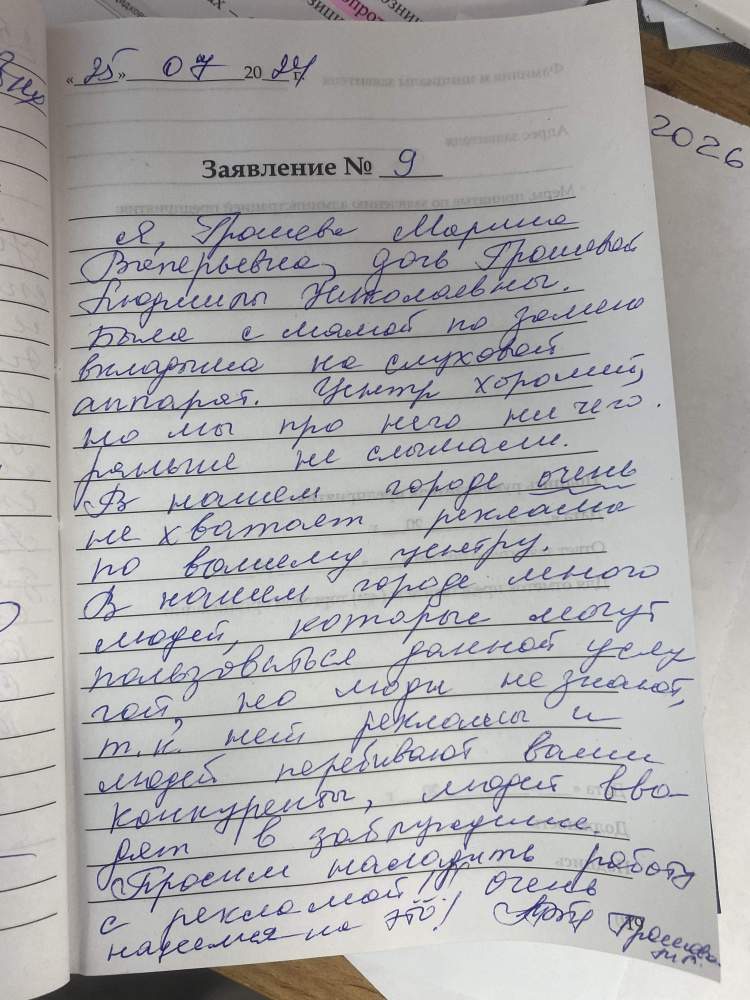 «25» 07 2024 г.
Заявление № 9
Я, Грошева Марина
Валерьевна, дочь Грошевой
Людмилы Николаевны.
Была с мамой по замене
вкладыша на слуховой
аппарат. Центр хороший,
но мы про него ни чего
раньше не слышали.
В нашем городе очень
не хватает рекламы
по вашему центру.
В нашем городе много
людей, которые могут
пользоваться данной услу
гой, но люди не знают,
т.к. нет рекламы и
людей перебивают ваши
конкуренты, людей вво-
дят в заблуждение.
Просим наладить работу
с рекламой!!! очень
надеемся на это! Грошева
М.В.
2026